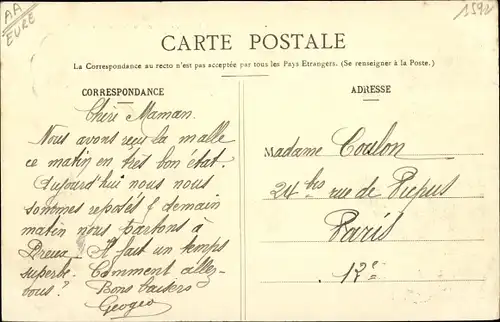 AA
EURE
1592
CARTE POSTALE
La Correspondance au recto n'est pas acceptée par tous les Pays Etrangers. (Se renseigner à la Poste.)
CORRESPONDANCE
Chère Maman.
Nous avons reçu la malle
ce matin en très bon état
Aujourd'hui nous nous
sommes reposés & demain
matin nous partons à
Dreux. Il fait un temps
superbe. Comment allez-
vous? Bons baisers
Georges
ADRESSE
Madame Coulon
24 bis rue de Picpus
Paris
12e